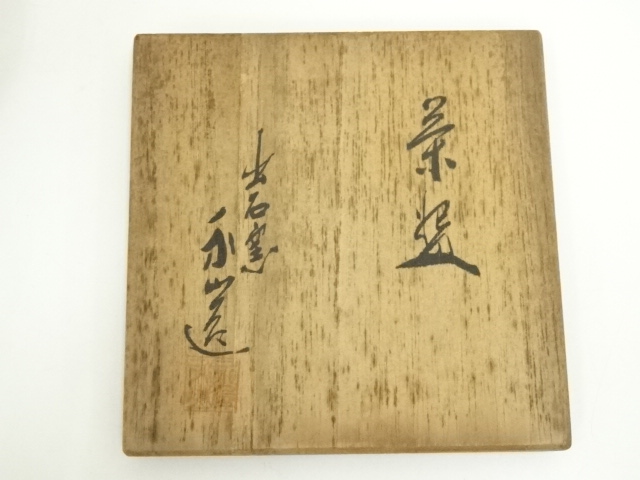 茶盌
出石窯
永山造